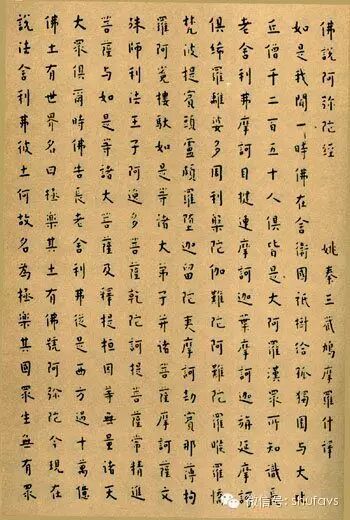 佛說阿弥陀經 姚秦三藏鳩摩羅什譯
如是我聞一時佛在舍衛國祇樹給孤獨園与大比
丘僧千二百五十人俱皆是大阿羅漢眾所知識長
老舍利弗摩訶目揵連摩訶迦葉摩訶迦旃延摩訶
俱絺羅離婆多周利槃陀伽難陀阿難陀羅睺羅憍
梵波提賓頭盧頗羅墮迦留陀夷摩訶劫賓那薄拘
羅阿㝹樓馱如是等諸大弟子并諸菩薩摩訶薩文
殊師利法王子阿逸多菩薩乾陀訶提菩薩常精進
菩薩与如是等諸大菩薩及釋提桓因等無量諸天
大眾俱爾時佛告長老舍利弗從是西方過十萬億
佛土有世界名曰極樂其土有佛號阿弥陀今現在
說法舍利弗彼土何故名為極樂其國眾生無有眾
微信号: shufavs